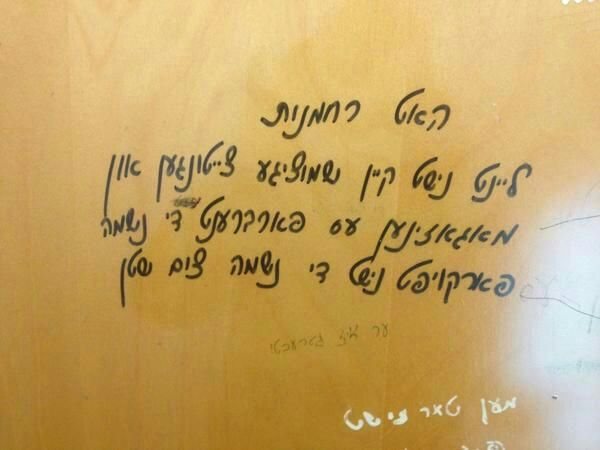 האט רחמנות
ליינט נישט קיין שמוציגע צייטונגען און
מאגאזינען עס פארברענט די נשמה
פארקויפט נישט די נשמה צים שטן
ער איז גערעכט
מען טאר נישט